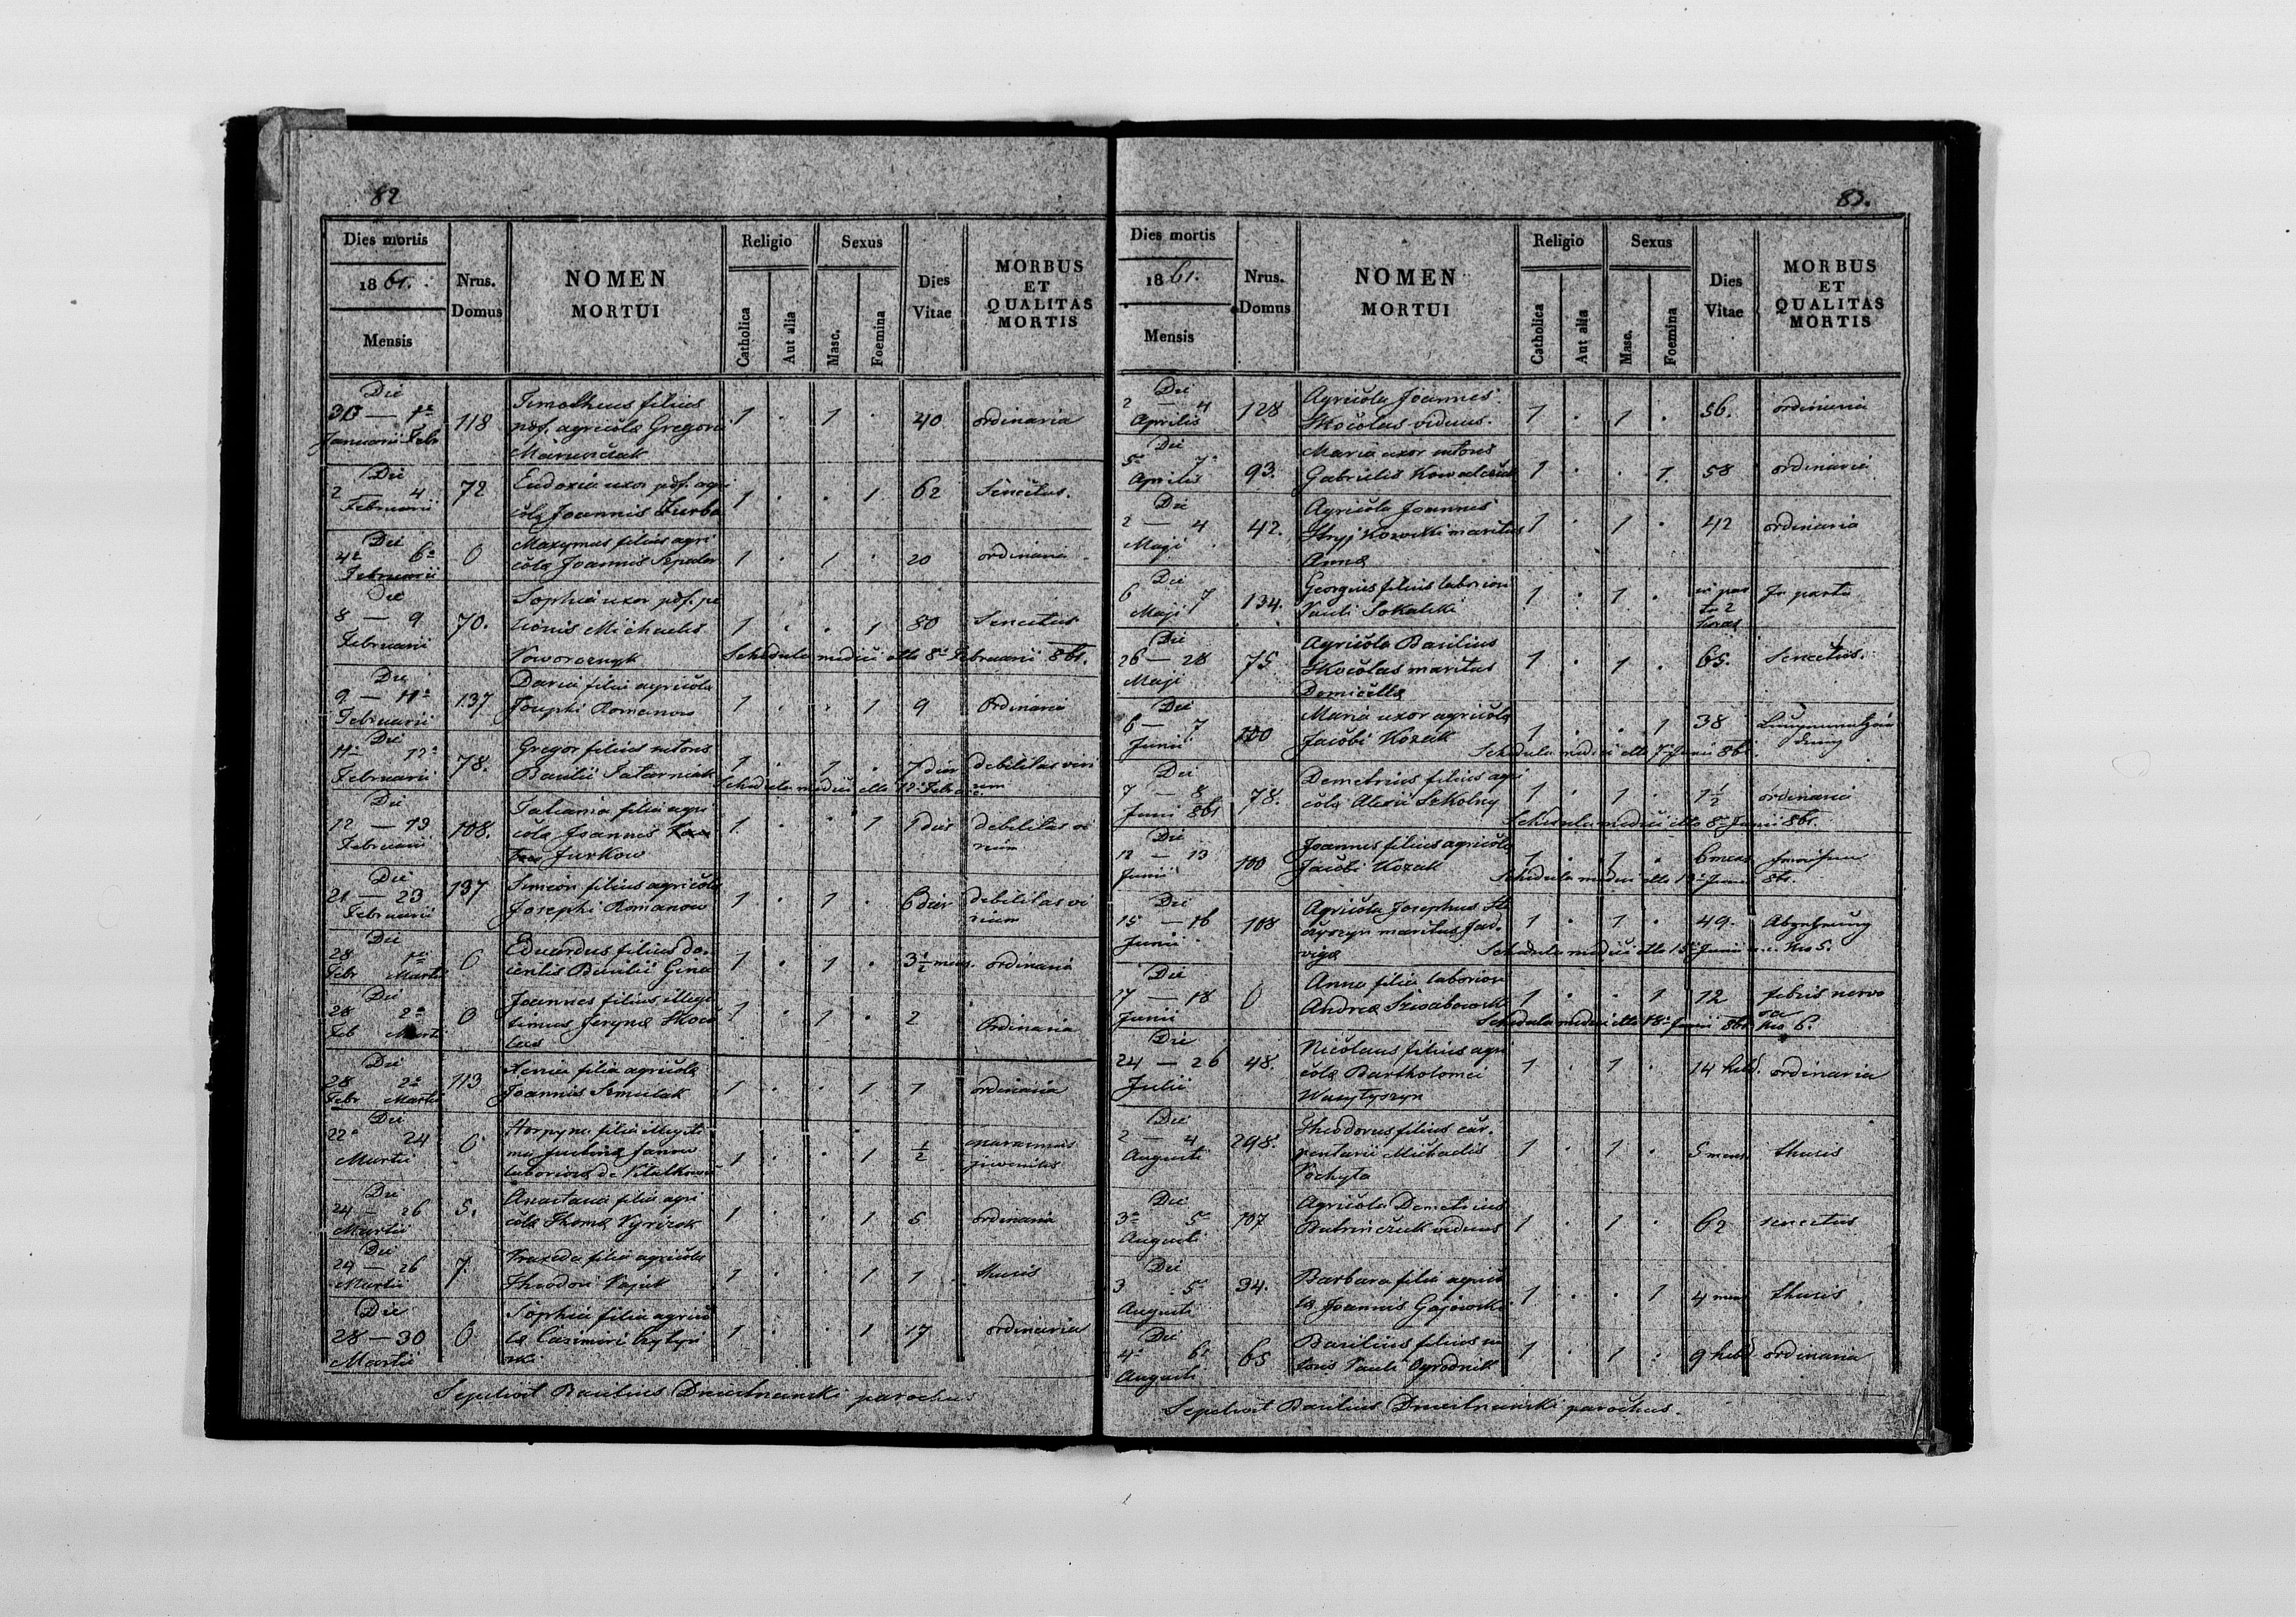 82
Dies mortis
1861.
Mensis
Nrus.
Domus
NOMEN
MORTUI
Religio
Catholica
Aut alia
Sexus
Masc.
Foemina
Dies
Vitae
MORBUS
ET
QUALITAS
MORTIS
Die
30 — 1a
Januarii Febr
118
Timotheus filius
pdf. agricolæ Gregorii
1 . 1 . 40 ordinaria
Die
2 — 4
Februarii
72
Eudoxia uxor pdf. agri
colæ Joannis Zurba
1 . . 1 62 Senectus.
Die
4a 6a
Februarii
0
Maxymus filius agri
colæ Joannis
1 . 1 . 20 ordinaria
Die
8 — 9
Februarii
70.
Sophia uxor pdf.
Michaelis
Noworoznyk
1 . . 1 80 Senectus
Schedula medici dto 8a Februarii 861.
Die
9 — 11a
Februarii
137
Daria filia agricolæ
Josephi Romanow
1 . . 1 9 Ordinaria
Die
11a 12a
Februarii
78.
Gregor filius
Basilii Tatarniak
1 . 1 . 7 dier debilitas viri
um
Schedula medici dto 12 Februar
Die
12 — 13
Februarii
108.
Tatiania filia agri
colæ Joannes
Jurkow
1 . . 1 1 dier debilitas vi
rium
Die
21 — 23
Februarii
137
Simeon filius agricolæ
Josephi Romanow
1 . 1 . 6 dier debilitas vi
rium
Die
28 1a
Febr Martii
0
Eduardus filius do
centis Basilii Gina
1 . 1 . 3½ mens. ordinaria
Die
28 2a
Feb Martii
0
Joannes filius illegi
timus Jerynæ Skoco
las
1 . 1 . 2 Ordinaria
Die
28 2a
Febr Martii
113
Xenia filia agricolæ
Joannis Semulak
1 . . 1 1 ordinaria
Die
22a 24
Martii
0
Horpyna filia illegiti
ma Justinæ Janow
1 . . 1 ½
Die
24 — 26
Martii
5.
Anastasia filia agri
colæ Thomæ Pyrizok
1 . . 1 5 ordinaria
Die
24 — 26
Martii
7.
Praxeda filia agricolæ
Theodori Pajuk
1 . . 1 1 thusis
Die
28 — 30
Martii
0
Sophia filia agrico
læ Casimiri
1 . . 1 17 ordinaria
Sepelivit Basilius Dniestrzanski parochus
83.
Dies mortis
1861.
Mensis
Nrus.
Domus
NOMEN
MORTUI
Religio
Catholica
Aut alia
Sexus
Masc.
Foemina
Dies
Vitae
MORBUS
ET
QUALITAS
MORTIS
Die
2 — 4
Aprilis
128
Agricola Joannes
Skocolas viduus.
1 . 1 . 56. ordinaria
Die
5 7a
Aprilis
93.
Maria uxor
Gabrielis Kowalczuk
1 . . 1 58 ordinaria
Die
2 — 4
Maji
42.
Agricola Joannes
Stryjkowski maritus
Annæ
1 . 1 . 42 ordinaria
Die
6 7
Maji
134.
Georgius filius laborion
Pauli Sokalski
1 . 1 . in par
tu 2
horas In partu
Die
26 — 28
Maji
75
Agricola Basilius
Skocolas maritus
Domicellæ
1 . 1 . 65. Senectus.
Die
6 — 7
Junii
100
Maria uxor agricolæ
Jacobi Kozak
1 . . 1 38
Schedula medici dto 7 Junii 861.
Die
7 — 8
Junii 861
78.
Demetrius filius agri
colæ Alexii Szkolny
1 . 1 . 1½ ordinaria
Schedula medici dto 8 Junii 861.
Die
12 — 13
Junii
100
Joannes filius agricolæ
Jacobi Kozak
1 . 1 . 6 mens
Schedula medici dto 12 Junii 861.
Die
15 — 16
Junii
108
Agricola Josephus
maritus Jad
vigæ
1 . 1 . 49. Abzehrung
Schedula medici dto 15 Junii a.c. Nro 5.
Die
17 — 18
Junii
0
Anna filia laborion
Andreæ
1 . . 1 12 febris nervo
sa
Schedula medici dto 18 Junii 861 Nro 6.
Die
24 — 26
Julii
48.
Nicolaus filius agri
colæ Bartholomei
Wasytyszyn
1 . 1 . 14 hebd. ordinaria
Die
2 — 4
Augusti
298.
Theodorus filius car
pentarii Michaelis
Pochyta
1 . 1 . 5 mens thusis
Die
3a 5
Augusti
107
Agricola Demetrius
Butrinczuk viduus
1 . 1 . 62 senectus
Die
3 5
Augusti
34.
Barbara filia agrico
læ Joannis Gajowski
1 . . 1 4 mens thusis
Die
4a 6a
Augusti
65
Basilius filius
Pauli Ogrodnik
1 . 1 . 9 hebd ordinaria
Sepelivit Basilius Dniestrzanski parochus.